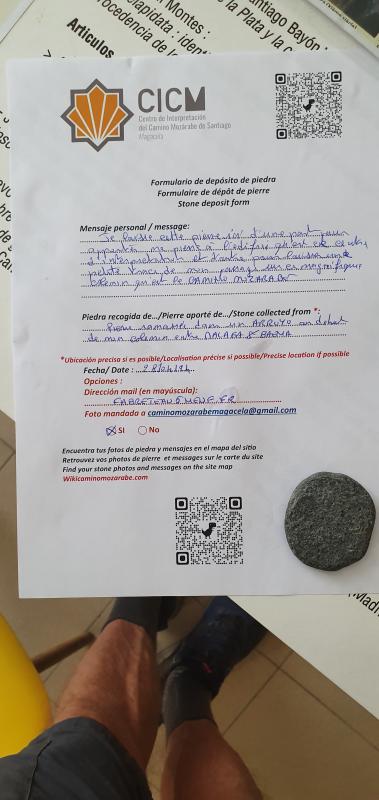 Santiago Bayón
Montes :
la Plata y la
lapidata : identi
procedencia de
Artículos
CICM
Centro de Interpretación
del Camino Mozárabe de Santiago
Magacela
Formulario de depósito de piedra
Formulaire de dépôt de pierre
Stone deposit form
Mensaje personal / message:
Je laisse cette pierre ici d'une part pour
apporter ma pierre à l'édifice qu'est ce centre
d'interprétation et d'autre pour laisser une
petite trace de mon passage sur ce magnifique
chemin qu'est le CAMINO MOZARABE
Piedra recogida de.../Pierre aporté de.../Stone collected from *:
Pierre ramassée dans un ARROYO au début
de mon chemin entre MALAGA & BAENA
*Ubicación precisa si es posible/Localisation précise si possible/Precise location if possible
Fecha/ Date :
Opciones :
Dirección mail (en mayúscula):
Foto mandado a caminomozarabemagacela@gmail.com
SI No
Encuentra tus fotos de piedra y mensajes en el mapa del sitio
Retrouvez vos photos de pierre et messages sur le carte du site
Find your stone photos and messages on the site map
Wikicaminomozarabe.com